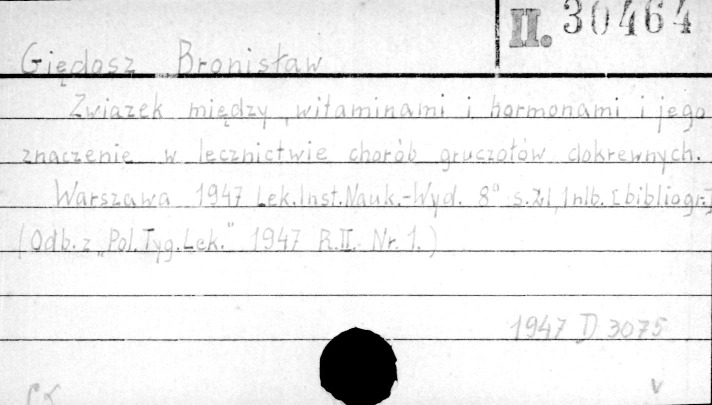 II. 30464
Giędosz Bronisław
Związek między witaminami i hormonami i jego
znaczenie w lecznictwie chorób gruczołów dokrewnych.
Warszawa 1947 Lek.Inst.Nauk.-Wyd. 8° s. 1nlb. [bibliogr.]
(Odb. z „Pol.Tyg.Lek." 1947 R.II. Nr. 1.)
1947 D 3075
v